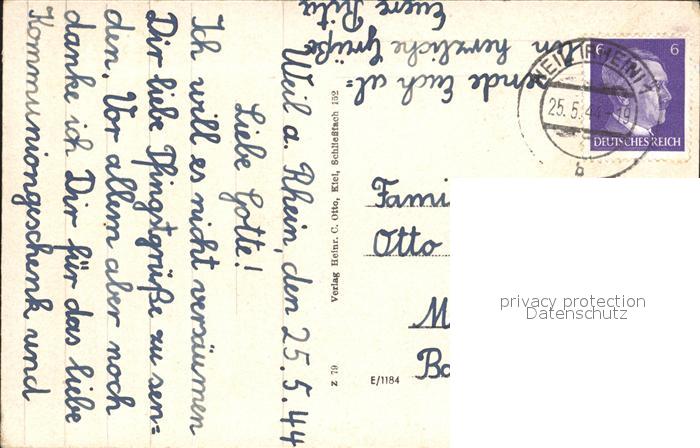 Weil a. Rhein, den 25.5.44
Liebe Gotte!
Ich will es nicht versäumen
Dir liebe Pfingstgrüße zu sen=
den. Vor allem aber noch
danke ich Dir für das liebe
Kommuniongeschenk und
sende Euch al=
len herzliche Grüße
Eure Rita
Verlag Heinr. C. Otto, Kiel, Schließfach 152
Z 79
E/1184
6 6
DEUTSCHES REICH
WEIL (RHEIN) 1
25.5.44 - 19
b
Fami
Otto
M
Ba
privacy protection
Datenschutz